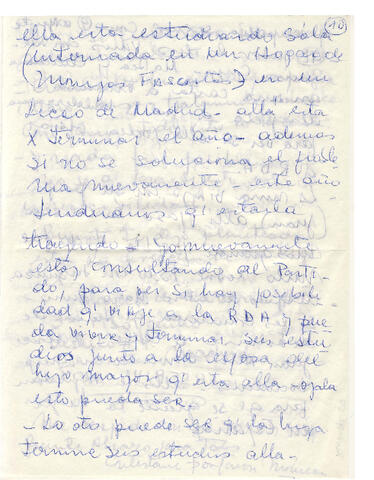 10
ella esta estudiando sola
(internada en un Hogar de
Monjas Fascistas) en un
Liceo de Madrid - alla esta
x terminar el año - ademas
si no se soluciona el proble
ma nuevamente - este año
tendriamos q' estarla
trayendo é yo nuevamente
estoy consultando al Parti-
do, para ver si hay posibili-
dad q' viaje a la RDA y pue
da vivir y terminar sus estu
dios junto a la esposa del
hijo mayor q' esta alla - ojala
esto pueda ser -
- Lo otro puede ser q' la hija
termine sus estudios alla -